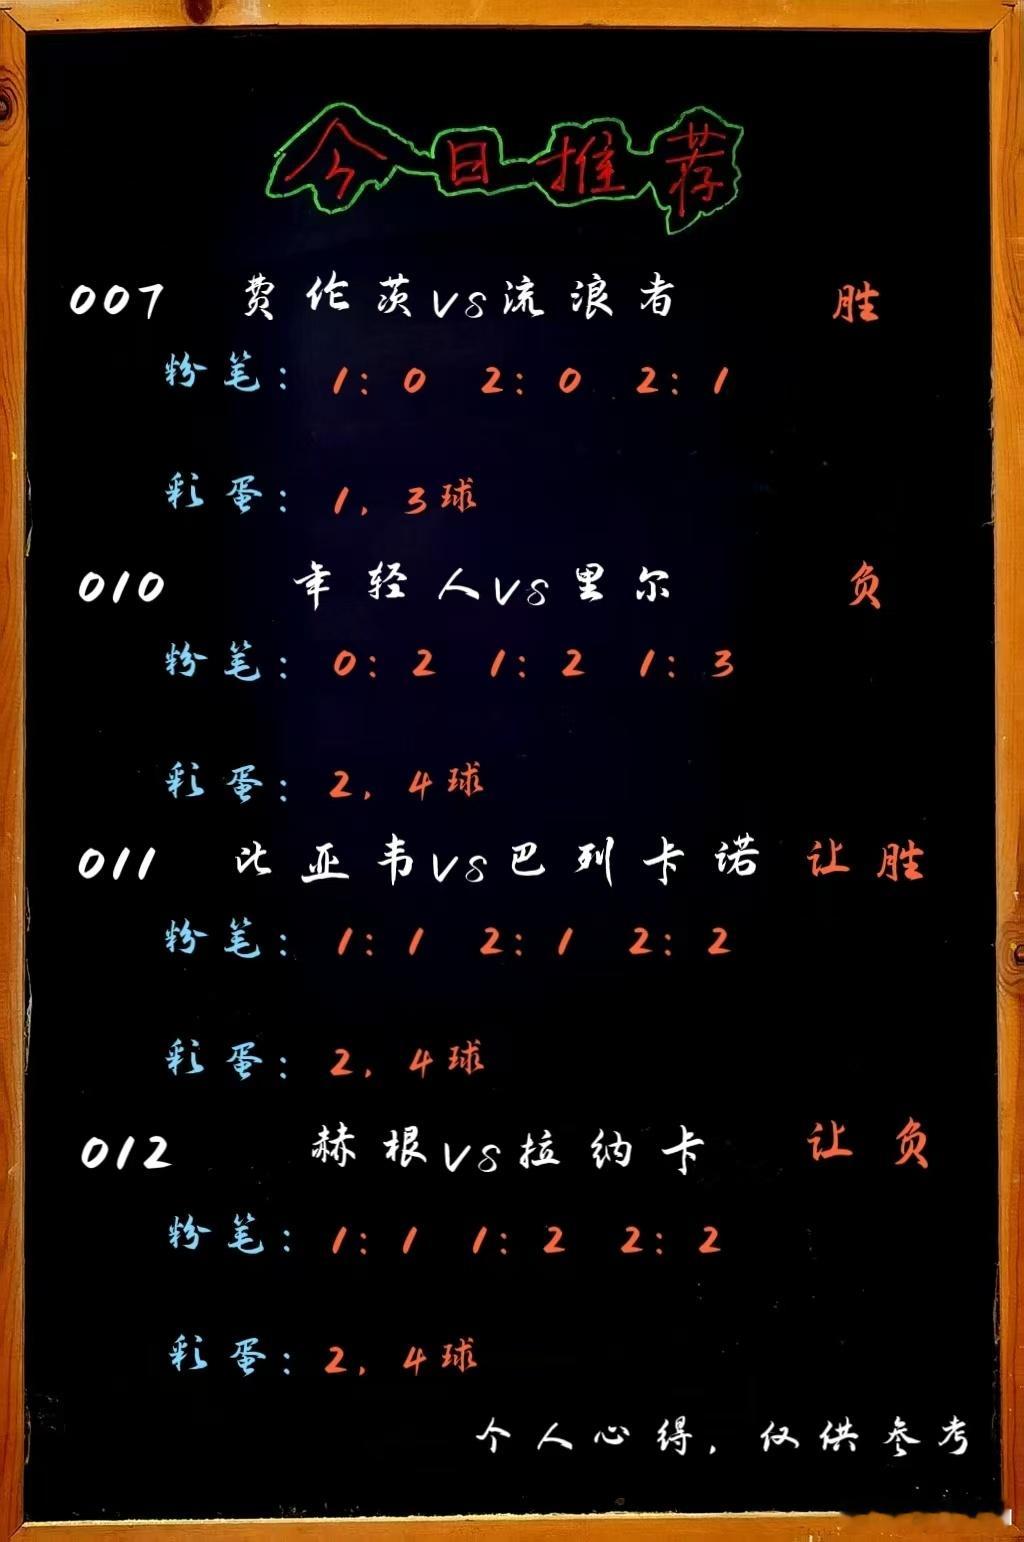 今日推荐
007 费伦茨vs流浪者 胜
粉笔: 1:0 2:0 2:1
彩蛋: 1,3球
010 年轻人vs里尔 负
粉笔: 0:2 1:2 1:3
彩蛋: 2,4球
011 比亚韦vs巴列卡诺 让胜
粉笔: 1:1 2:1 2:2
彩蛋: 2,4球
012 赫根vs拉纳卡 让负
粉笔: 1:1 1:2 2:2
彩蛋: 2,4球
个人心得,仅供参考